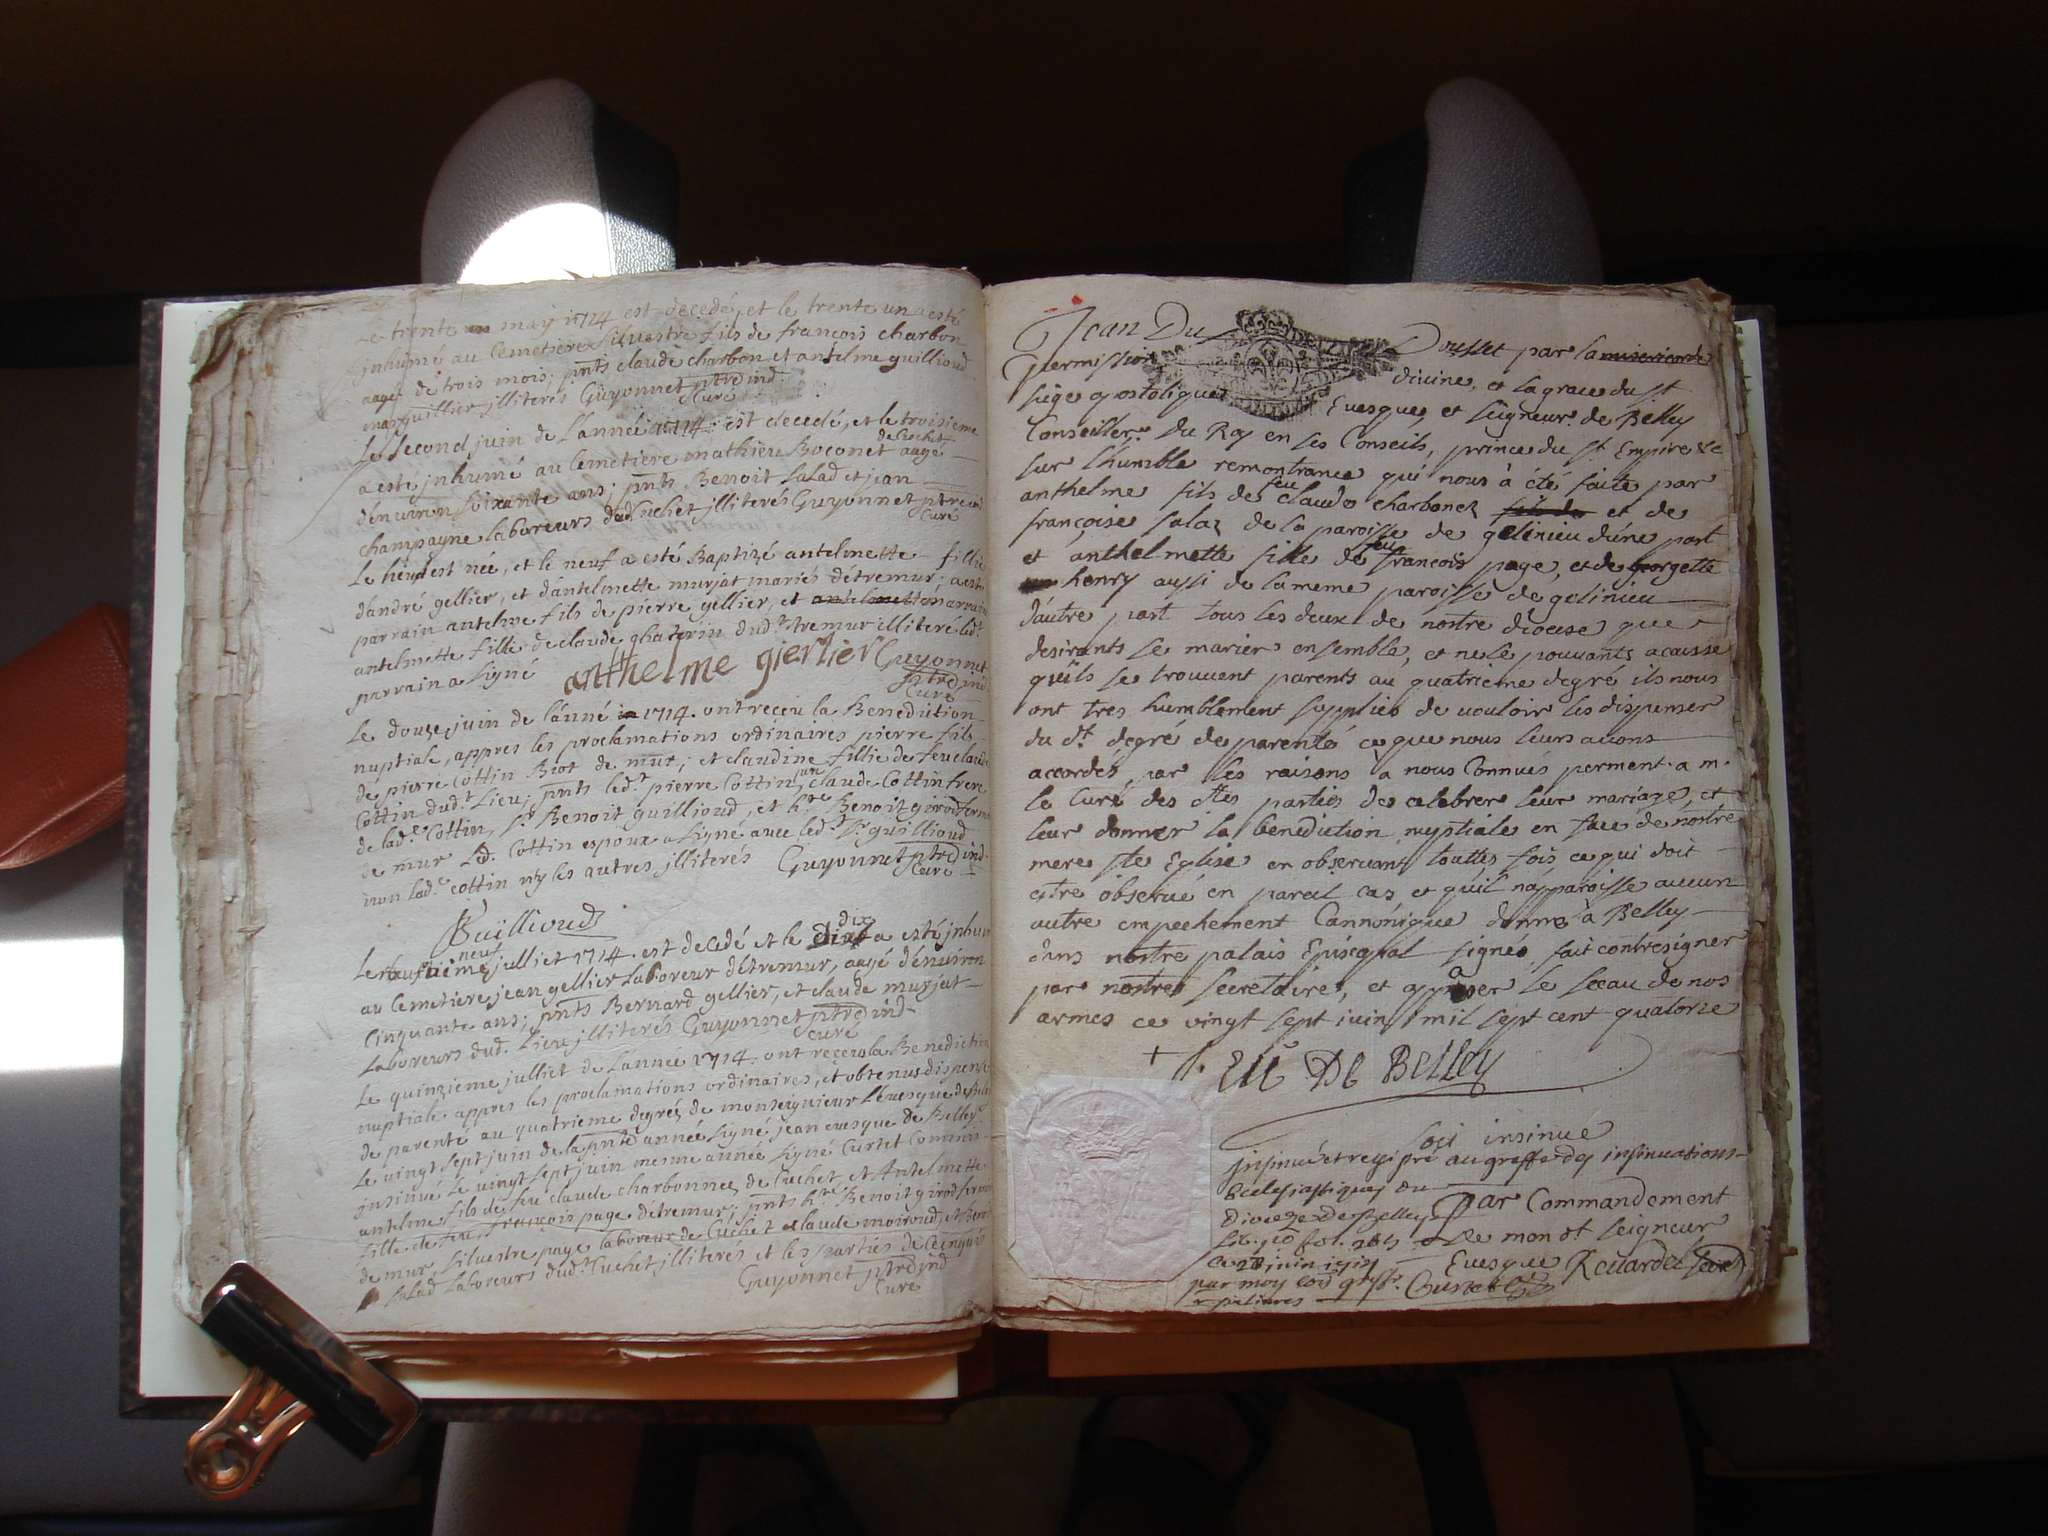 Le trente may 1714 est decedé, et le trente un a esté
jnhumé au Cemetiere Siluestre fils de françois charbon
aagé de trois mois; pnts claude charbon et antelme guillioud
marguillier jlliterés Guyonnet ptre jnd.
Curé
Le second juin de L'année 1714. est decedé, et le troisieme
a esté jnhumé au Cemetiere mathieu Boconet de Cuchet aagé
d'enuiron soixante ans; pnts Benoit Salad et jean
champagne laboreurs dud. Cuchet jlliterés Guyonnet ptre jnd
Curé
Le est née, et le neuf a esté Baptizé antelmette fillie
d'andré gellier, et d'antelmette murjat mariés d'étremur; a esté
parrain antelme fils de pierre gellier, et antelmette marraine
antelmette fillie de claude dud. tremur illiteré led.t
parrain a signé anthelme gierlier Guyonnet
ptre jnd
Curé
Le douze juin de l'anné 1714. ont receu la Benediction
nuptiale, appres les proclamations ordinaires pierre fils
de pierre Cottin Biot de mur; et claudine fillie de feu claude
Cottin dud.t Lieu; pnts led.t pierre Cottin, claude Cottin frere
de lad.e Cottin, s.r Benoit guillioud, et h.te Benoit girod
de mur Led. Cottin espoux a signé auec led.t s.r guillioud
non lad.e cottin ny les autres jlliterés Guyonnet ptre jnd.
Curé
BGuillioud
Le neuf julliet 1714. est decedé et le dix a esté jnhumé
au Cemetiere jean gellier Laboreur d'étremur, aagé d'enuiron
Cinquante ans; pnts Bernard gellier, et claude murjat
Laboreurs dud. Lieu jlliterés Guyonnet ptre jnd.
curé
Le quinzieme julliet de L'année 1714. ont receu la Benediction
nuptiale appres les proclamations ordinaires, et obtenus dispense
de parenté au quatrieme degréz de monseigneur L'euesque de Belley
Le vingt sept juin de la pnte année signé jean euesque de Belley
jnsinué Le vingt sept juin mesme année signé Curtet Commis
antelme fils de feu claude charbonnez de Cuchet, et Antelmette
fille de feu françois page d'étremur; pnts h.te Benoit girod
de mur, Siluestre page laboreur de Cuchet claude moiroud, et Benoit
Salad Laboreurs dud.t Cuchet jlliterés et les parties de ce enquis
Guyonnet ptre jnd
Curé
Jean Du Dousset par la misericorde
permission divine, et la grace du S.t
siege apostolique Euesque, et seigneur de Belley
Conseiller du Roy en ses Conseils, prince du S.t Empire &c
sur l'humble remontrance qui nous à été faite par
anthelme fils de feu claude charbonez fils de et de
françoise salaz de la paroisse de gelinieu d'une part
et anthelmette fille de feu françois page, et de georgette
henry aussi de la meme paroisse de gelinieu
d'autre part tous les deux de nostre diocese que
desirants se marier ensemble, et ne le pouvants a causse
qu'ils se trouvent parents au quatrieme degré ils nous
ont tres humblement supplies de vouloir les dispenser
du d.t degré de parenté ce que nous leurs avons
accordés par les raisons à nous Connues perment a m.
le Curé des d.tes parties de celebrer leur mariage, et
leur donner la benediction nuptiale en face de nostre
mere ste Eglise en observant touttes fois ce qui doit
estre observé en pareil cas et qu'il n'apparoisse aucun
autre empechement Cannónique donné à Belley
dans nostre palais Episcopal signés, fait contresigner
par nostre secretaire, et apposer le sceau de nos
armes ce vingt sept iuin mil sept cent quatorze
+ J. EVE DE BELLEY
soit insinue
jnsinué et regi pré au greffe des insinuations
Ecclesiastiques du
Dioceze de Belley
Par Commandement
de mon d.t seigneur
ce 27 juin 1714
Euesque
par moy greff. Curtet